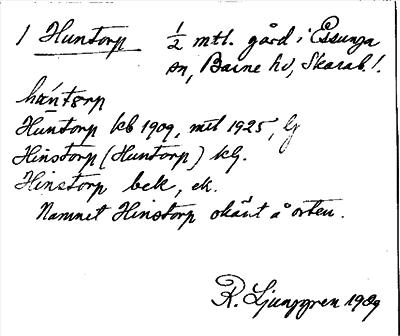 1 Huntorp ½ mtl. gård i Essunga
sn, Barne hd, Skarab. l.
hæ̀ntørp
Huntorp kb 1909, mtl 1925, G
Hinstorp (Huntorp) kg.
Hinstorp bek, ek.
Namnet Hinstorp okänt å orten.
R. Ljunggren 1929